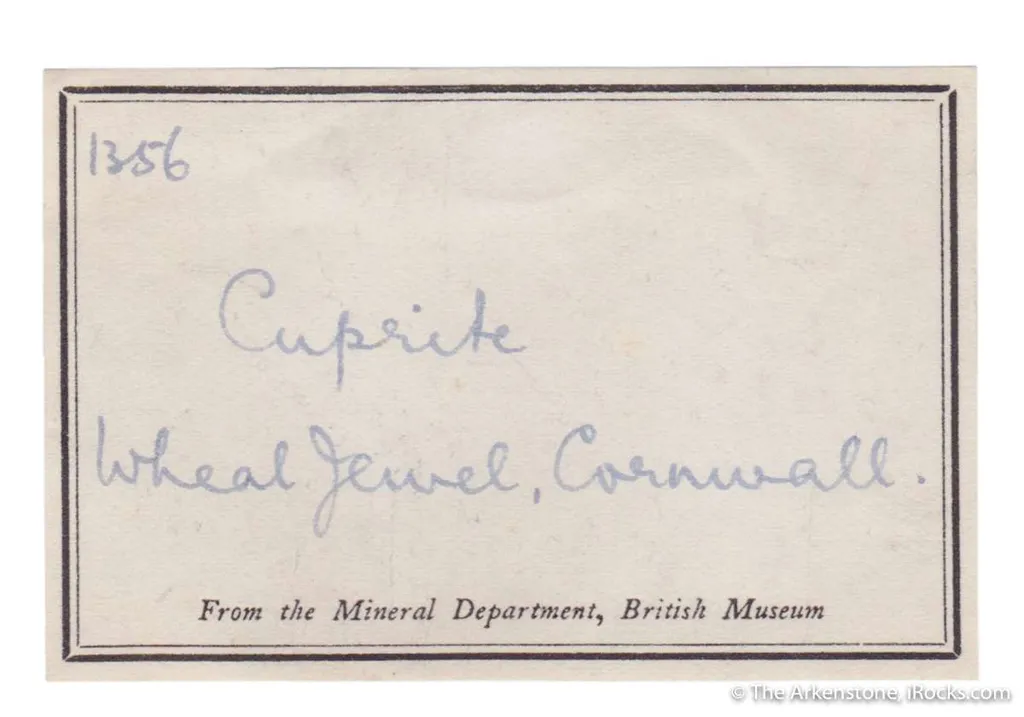 1356
Cuprite
Wheal Jewel, Cornwall.
From the Mineral Department, British Museum
© The Arkenstone, iRocks.com